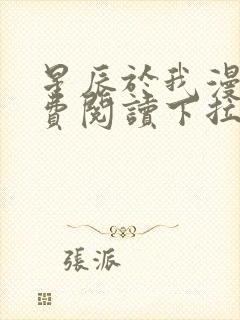 星辰於我漫
費閱讀下拉
張派